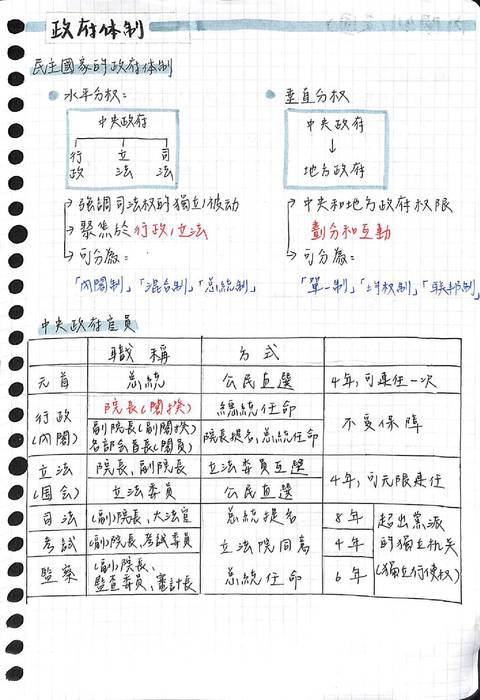 政府体制
民主國家的政府体制
水平分权：
中央政府
行政 立法 司法
→强調司法权的獨立/被动
→聚焦於行政/立法
→可分為：
「內閣制」「混合制」「总統制」
垂直分权
中央政府
↓
地方政府
→中央和地方政府权限
劃分和互動
→可分為：
「單一制」「均权制」「联邦制」
中央政府官員
職稱 方式
元首 总統 公民直選 4年,可連任一次
行政(內閣) 院長(閣揆) 總統任命 不受保障
副院長(副閣揆) 各部会首長(閣員) 院長提名,总統任命
立法(国会) 院長、副院長 立法委員互選 4年,可无限連任
立法委員 公民直選
司法 (副)院長、大法官 总統提名 8年 超出黨派
考試 (副)院長、考試委員 立法院同意 4年 的獨立机关
監察 (副)院長、監查委員、審計長 总統任命 6年 (獨立行使权)